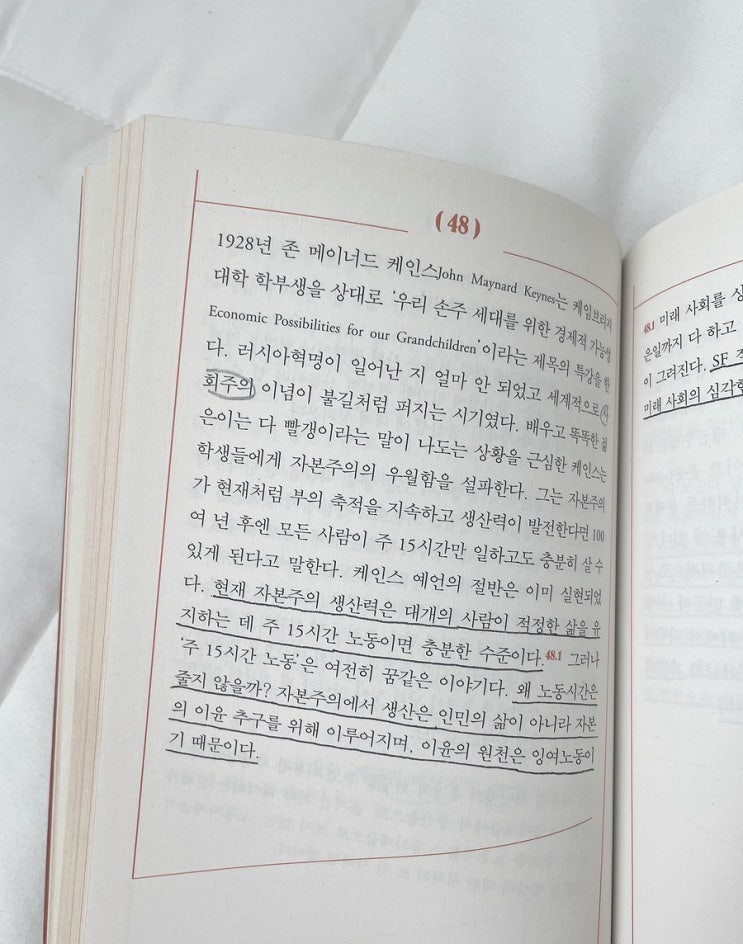 (48)
1928년 존 메이너드 케인스John Maynard Keynes는 케임브리지
대학 학부생을 상대로 '우리 손주 세대를 위한 경제적 가능성
Economic Possibilities for our Grandchildren'이라는 제목의 특강을 한
다. 러시아혁명이 일어난 지 얼마 안 되었고 세계적으로 사
회주의 이념이 불길처럼 퍼지는 시기였다. 배우고 똑똑한 젊
은이는 다 빨갱이라는 말이 나도는 상황을 근심한 케인스는
학생들에게 자본주의의 우월함을 설파한다. 그는 자본주의
가 현재처럼 부의 축적을 지속하고 생산력이 발전한다면 100
여 년 후엔 모든 사람이 주 15시간만 일하고도 충분히 살 수
있게 된다고 말한다. 케인스 예언의 절반은 이미 실현되었
다. 현재 자본주의 생산력은 대개의 사람이 적정한 삶을 유
지하는 데 주 15시간 노동이면 충분한 수준이다.48.1 그러나
'주 15시간 노동'은 여전히 꿈같은 이야기다. 왜 노동시간은
줄지 않을까? 자본주의에서 생산은 인민의 삶이 아니라 자본
의 이윤 추구를 위해 이루어지며, 이윤의 원천은 잉여노동이
기 때문이다.
48.1 미래 사회를 상
은일까지 다 하고
이 그려진다. SF
미래 사회의 심각한